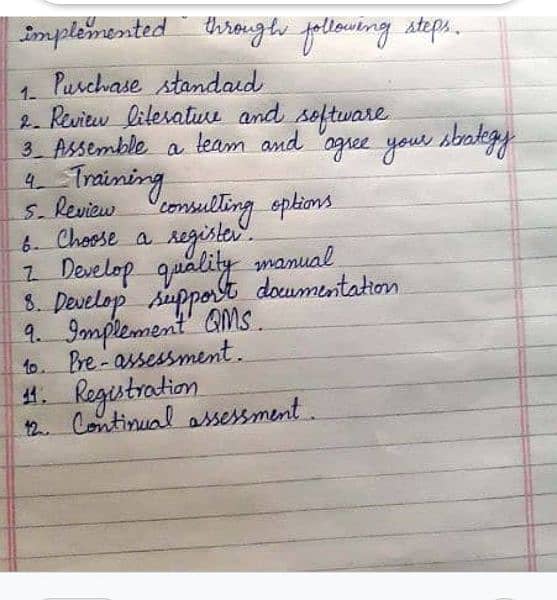 implemented through following steps.
1. Purchase standard
2. Review literature and software
3. Assemble a team and agree your strategy
4. Training
5. Review consulting options
6. Choose a register.
7 Develop quality manual
8. Develop support documentation
9. Implement QMS.
10. Pre-assessment.
11. Registration
12. Continual assessment.